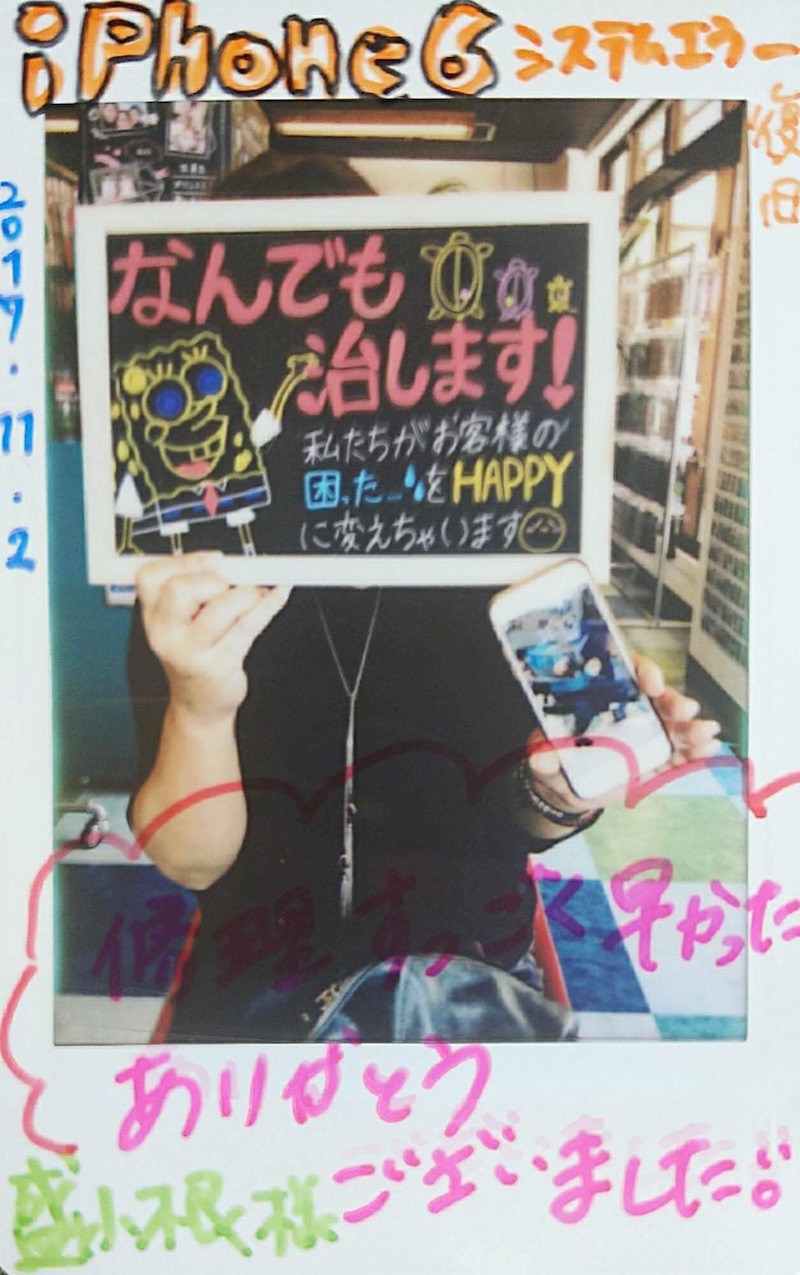 iPhone6 システムエラー
復旧
2017.11.2
なんでも
治します!
私たちがお客様の
困った...をHAPPY
に変えちゃいます
修理 すっごく早かった
ありがとう
ございました。
盛小根様